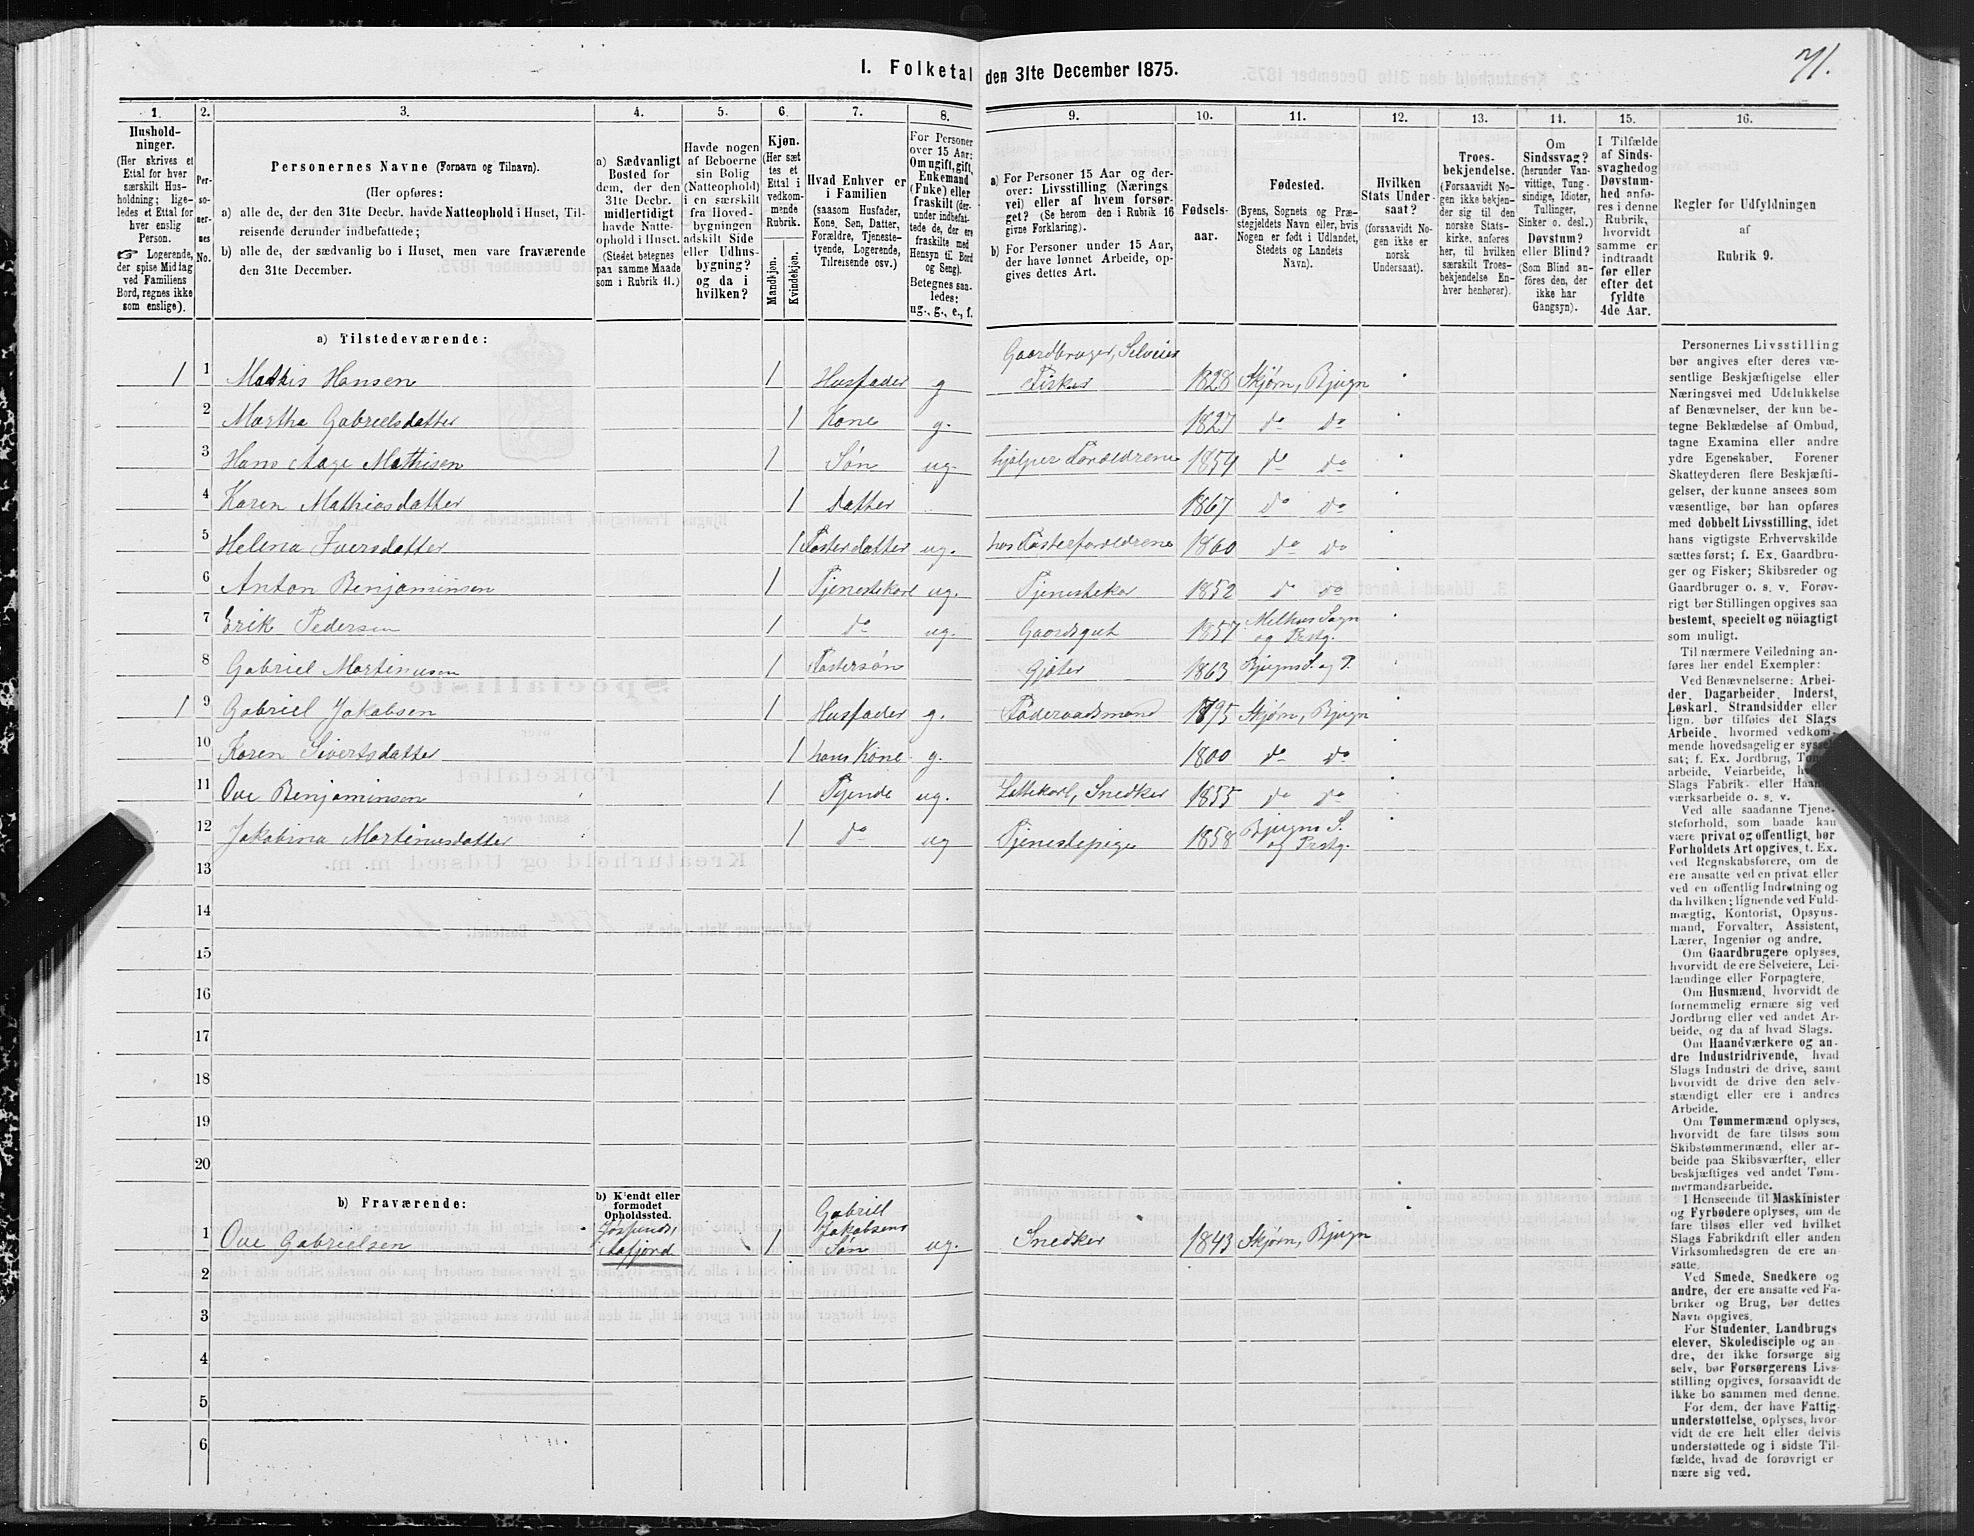 I. Folketal den 31te December 1875.
71.
1. 2. 3. 4. 5. 6. 7. 8. 9. 10. 11. 12. 13. 14. 15. 16.
Hushold-
ninger.
(Her skrives et
Ettal for hver
særskilt Hus-
holdning; lige-
ledes et Ettal for
hver enslig
Person.
☞ Logerende,
der spise Middag
ved Familiens
Bord, regnes ikke
som enslige).
Per-
so-
ner-
nes
No.
Personernes Navne (Fornavn og Tilnavn).
(Her opføres:
a) alle de, der den 31te Decbr. havde Natteophold i Huset, Til-
reisende derunder indbefattede;
b) alle de, der sædvanlig bo i Huset, men vare fraværende
den 31te December.
a) Sædvanligt
Bosted for
dem, der den
31te Decbr.
midlertidigt
havde Natte-
ophold i Huset.
(Stedet betegnes
paa samme Maade
som i Rubrik 11.)
Havde nogen
af Beboerne
sin Bolig
(Natteophold)
i en særskilt
fra Hoved-
bygningen
adskilt Side
eller Udhus-
bygning?
og da i
hvilken?
Kjøn.
(Her sæt
tes et
Ettal i
vedkom-
mende
Rubrik.
Mandkjøn.
Kvindekjøn.
Hvad Enhver er
i Familien
(saasom Husfader,
Kone, Søn, Datter,
Forældre, Tjeneste-
tyende, Logerende,
Tilreisende osv.)
For Personer
over 15 Aar:
Om ugift, gift,
Enkemand
(Enke) eller
fraskilt (der-
under indbefat-
tede de, der ere
fraskilte med
Hensyn til Bord
og Seng).
Betegnes saa-
ledes:
ug., g., e., f.
a) For Personer 15 Aar og der-
over: Livsstilling (Nærings-
vei) eller af hvem forsør-
get? (Se herom den i Rubrik 16
givne Forklaring).
b) For Personer under 15 Aar,
der have lønnet Arbeide, op-
gives dettes Art.
Fødsels-
aar.
Fødested.
(Byens, Sognets og Præ-
stegjeldets Navn eller, hvis
Nogen er født i Udlandet,
Stedets og Landets
Navn).
Hvilken
Stats Under-
saat?
(forsaavidt No-
gen ikke er
norsk
Undersaat).
Troes-
bekjendelse.
(Forsaavidt No-
gen ikke bekjen-
der sig til den
norske Stats-
kirke, anføres
her, til hvilken
særskilt Troes-
bekjendelse En-
hver henhører).
Om
Sindssvag?
(herunder Van-
vittige, Tung-
sindige, Idioter,
Tullinger,
Sinker o. desl.)
Døvstum?
eller Blind?
(Som Blind an-
føres den, der
ikke har
Gangsyn).
I Tilfælde
af Sinds-
svaghed og
Døvstum-
hed anfø-
res i denne
Rubrik,
hvorvidt
samme er
indtraadt
før eller
efter det
fyldte
4de Aar.
Regler for Udfyldningen
af
Rubrik 9.
a) Tilstedeværende:
Gaardbruger, Selveier
1 1 Mathis Hansen 1 Husfader g Fisker 1828 Skjørn, Bjugn
2 Martha Gabrielsdatter 1 Kone g. 1827 do do
3 Hans Aage Mathisen 1 Søn ug. hjælper Forældrene 1859 do do
4 Karen Mathiasdatter 1 Datter 1867 do do
5 Helena Iversdatter 1 Fosterdatter ug. hos Fosterforældrene 1860 do do
6 Anton Benjaminsen 1 Tjenestekarl ug. Tjenestekar 1852 do do
7 Erik Pedersen 1 do ug. Gaardsgut 1857 Melhus Sogn
og Prstg.
8 Gabriel Martinusen 1 Fostersøn Gjæter 1863 Bjugns S. og P.
1 9 Gabriel Jakobsen 1 Husfader g. Føderaadsmand 1795 Skjørn, Bjugn
10 Karen Sivertsdatter 1 hans Kone g. 1800 do do
11 Ove Benjaminsen 1 Tjende ug. Lottekarl, Snedker 1855 do do
12 Jakobina Martinusdatter 1 do ug Tjenestepige 1858 Bjugns S.
og Prstg.
13
14
15
16
17
18
19
20
b) Fraværende:
b) Kjendt eller
formodet
Opholdssted.
1 Ove Gabrielsen Aafjord 1 Gabriel
Jakobsens
Søn ug. Snedker 1843 Skjørn, Bjugn
2
3
4
5
6
Personernes Livsstilling
bør angives efter deres væ-
sentlige Beskjæftigelse eller
Næringsvei med Udelukkelse
af Benævnelser, der kun be-
tegne Beklædelse af Ombud,
tagne Examina eller andre
ydre Egenskaber. Forener
Skatteyderen flere Beskjæfti-
gelser, der kunne ansees som
væsentlige, bør han opføres
med dobbelt Livsstilling, idet
hans vigtigste Erhvervskilde
sættes først; f. Ex. Gaardbru-
ger og Fisker; Skibsreder og
Gaardbruger o. s. v. Forøv-
rigt bør Stillingen opgives saa
bestemt, specielt og nøiagtigt
som muligt.
Til nærmere Veiledning an-
føres her endel Exempler:
Ved Benævnelserne: Arbei-
der, Dagarbeider, Inderst,
Løskarl, Strandsidder eller
lign. bør tilføies det Slags
Arbeide, hvormed vedkom-
mende hovedsagelig er syssel-
sat; f. Ex. Jordbrug,
arbeide, Veiarbeide,
Slags Fabrik- eller
værksarbeide o. s. v.
Ved alle saadanne Tjene-
steforhold, som baade kan
være privat og offentligt, bør
Forholdets Art opgives, t. Ex.
ved Regnskabsførere, om de
ere ansatte ved en privat eller
ved en offentlig Indretning og
da hvilken; lignende ved Fuld-
mægtig, Kontorist, Opsyns-
mand, Forvalter, Assistent,
Lærer, Ingeniør og andre.
Om Gaardbrugere oplyses,
hvorvidt de ere Selveiere, Lei-
lændinge eller Forpagtere.
Om Husmænd, hvorvidt de
fornemmelig ernære sig ved
Jordbrug eller ved andet Ar-
beide, og da af hvad Slags.
Om Haandværkere og an-
dre Industridrivende, hvad
Slags Industri de drive, samt
hvorvidt de drive den selv-
stændigt eller ere i andres
Arbeide.
Om Tømmermænd oplyses,
hvorvidt de fare tilsøs som
Skibstømmermænd, eller ar-
beide paa Skibsværfter, eller
beskjæftiges ved andet Tøm-
mermandsarbeide.
I Henseende til Maskinister
og Fyrbødere oplyses, om de
fare tilsøs eller ved hvilket
Slags Fabrikdrift eller anden
Virksomhedsgren de ere an-
satte.
Ved Smede, Snedkere og
andre, der ere ansatte ved Fa-
briker og Brug, bør dettes
Navn opgives.
For Studenter, Landbrugs
elever, Skoledisciple og an-
dre, der ikke forsørge sig
selv, bør Forsørgerens Livs-
stilling opgives, forsaavidt de
ikke bo sammen med denne.
For dem, der have Fattig-
understøttelse, oplyses, hvor-
vidt de ere helt eller delvis
understøttede og i sidste Til-
fælde, hvad de forøvrigt er
nære sig ved.